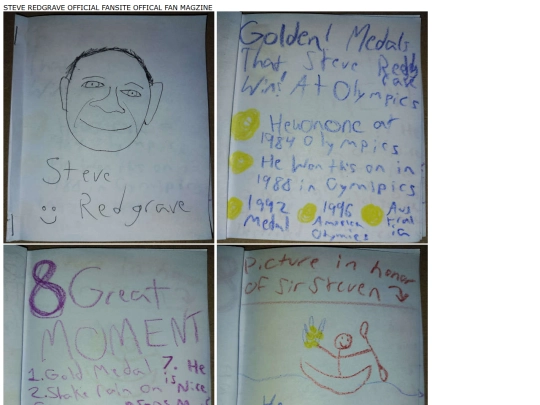 STEVE REDGRAVE OFFICIAL FANSITE OFFICAL FAN MAGZINE
Steve
:) Redgrave
Golden! Medals
That Steve Redg
rave
Win! At Olympics
He won one at
1984 Olympics
He Won this on in
1988 in Oymipics
1992
Medal
1996
America
Olymics
Aus
tral
ia
8 Great
MOMENT
1. Gold Medal
2. Shake rain on
7. He
is
Nice
Picture in honor
of Sir Steven
He